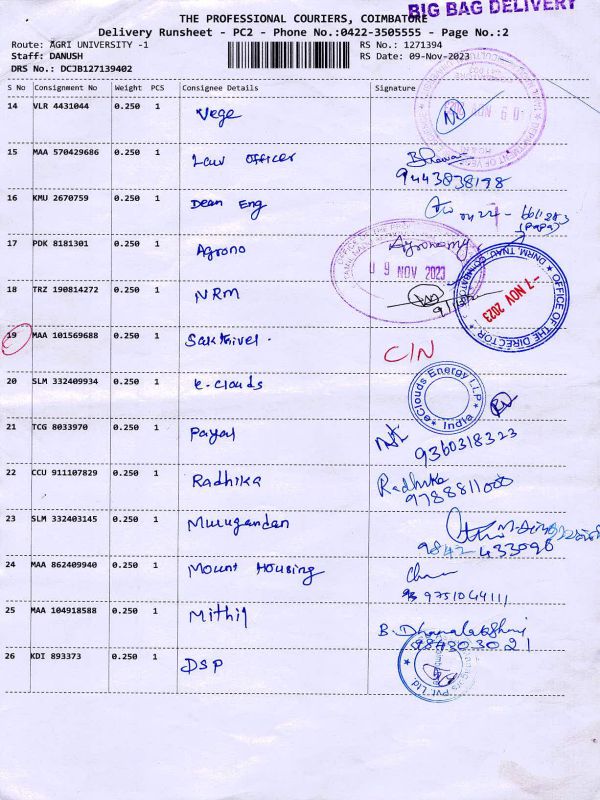 BIG BAG DELIVERY
THE PROFESSIONAL COURIERS, COIMBATORE
Delivery Runsheet - PC2 - Phone No.:0422-3505555 - Page No.:2
Route: AGRI UNIVERSITY -1 RS No.: 1271394
Staff: DANUSH RS Date: 09-Nov-2023
DRS No.: DCJB127139402
S No Consignment No Weight PCS Consignee Details Signature
14 VLR 4431044 0.250 1 Vege
15 MAA 570429686 0.250 1 Law Officer
9443838198
16 KMU 2670759 0.250 1 Dean Eng
(Papa)
17 PDK 8181301 0.250 1 Agrono Agronomy
09 NOV 2023
18 TRZ 190814272 0.250 1 NRM
OFFICE OF THE DIRECTOR DNRM, TNAU, COIMBATORE
-7 NOV 2023
19 MAA 101569688 0.250 1 Sakthivel. C/N
20 SLM 332409934 0.250 1 e-clouds
eClouds Energy LLP India
21 TCG 8033970 0.250 1 Payal
9360318323
22 CCU 911107829 0.250 1 Radhika Radhika
9788811000
23 SLM 332403145 0.250 1 Murugandan
9842-433090
24 MAA 862409940 0.250 1 Mount Housing
9751064111
25 MAA 104918588 0.250 1 Mithil B. Dhanalakshmi
984303021
26 KDI 893373 0.250 1 DSP
Pvt. Ltd.